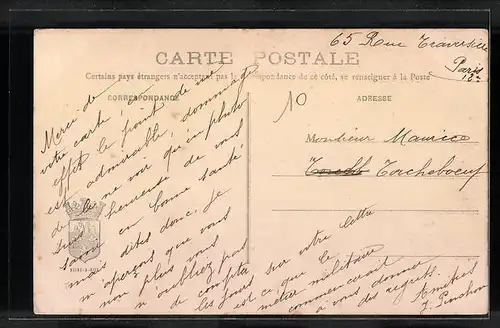 65 Rue Traversière
Paris
12e
CARTE POSTALE
Certains pays étrangers n'acceptent pas la correspondance de ce côté, se renseigner à la Poste
CORRESPONDANCE
ADRESSE
10
Monsieur Maurice
Torcheboeuf
Merci de
votre carte, en
effet le point de vue
est admirable, dommage
de ne voir qu'un
suis heureuse de vous
savoir en bonne santé
mais dites donc je
m'aperçois que vous
non plus vous
n'oubliez pas
de compter
les jours sur votre lettre
est-ce que le
métier militaire
commencerait
à vous donner
des regrets.
Amitiés